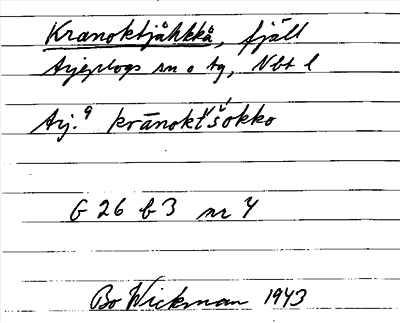 Kranoktjåhkkå, fjäll
Arjeplogs sn o tg, Nbt l
Arj.⁹ krānokt́š́okko
G 26 b 3 nr 4
Bo Wickman 1943